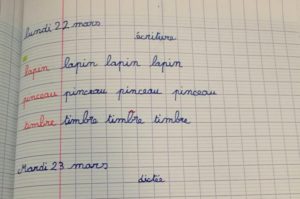 lundi 22 mars
écriture
lapin lapin lapin lapin
pinceau pinceau pinceau pinceau
timbre timbre timbre timbre
Mardi 23 mars
dictée